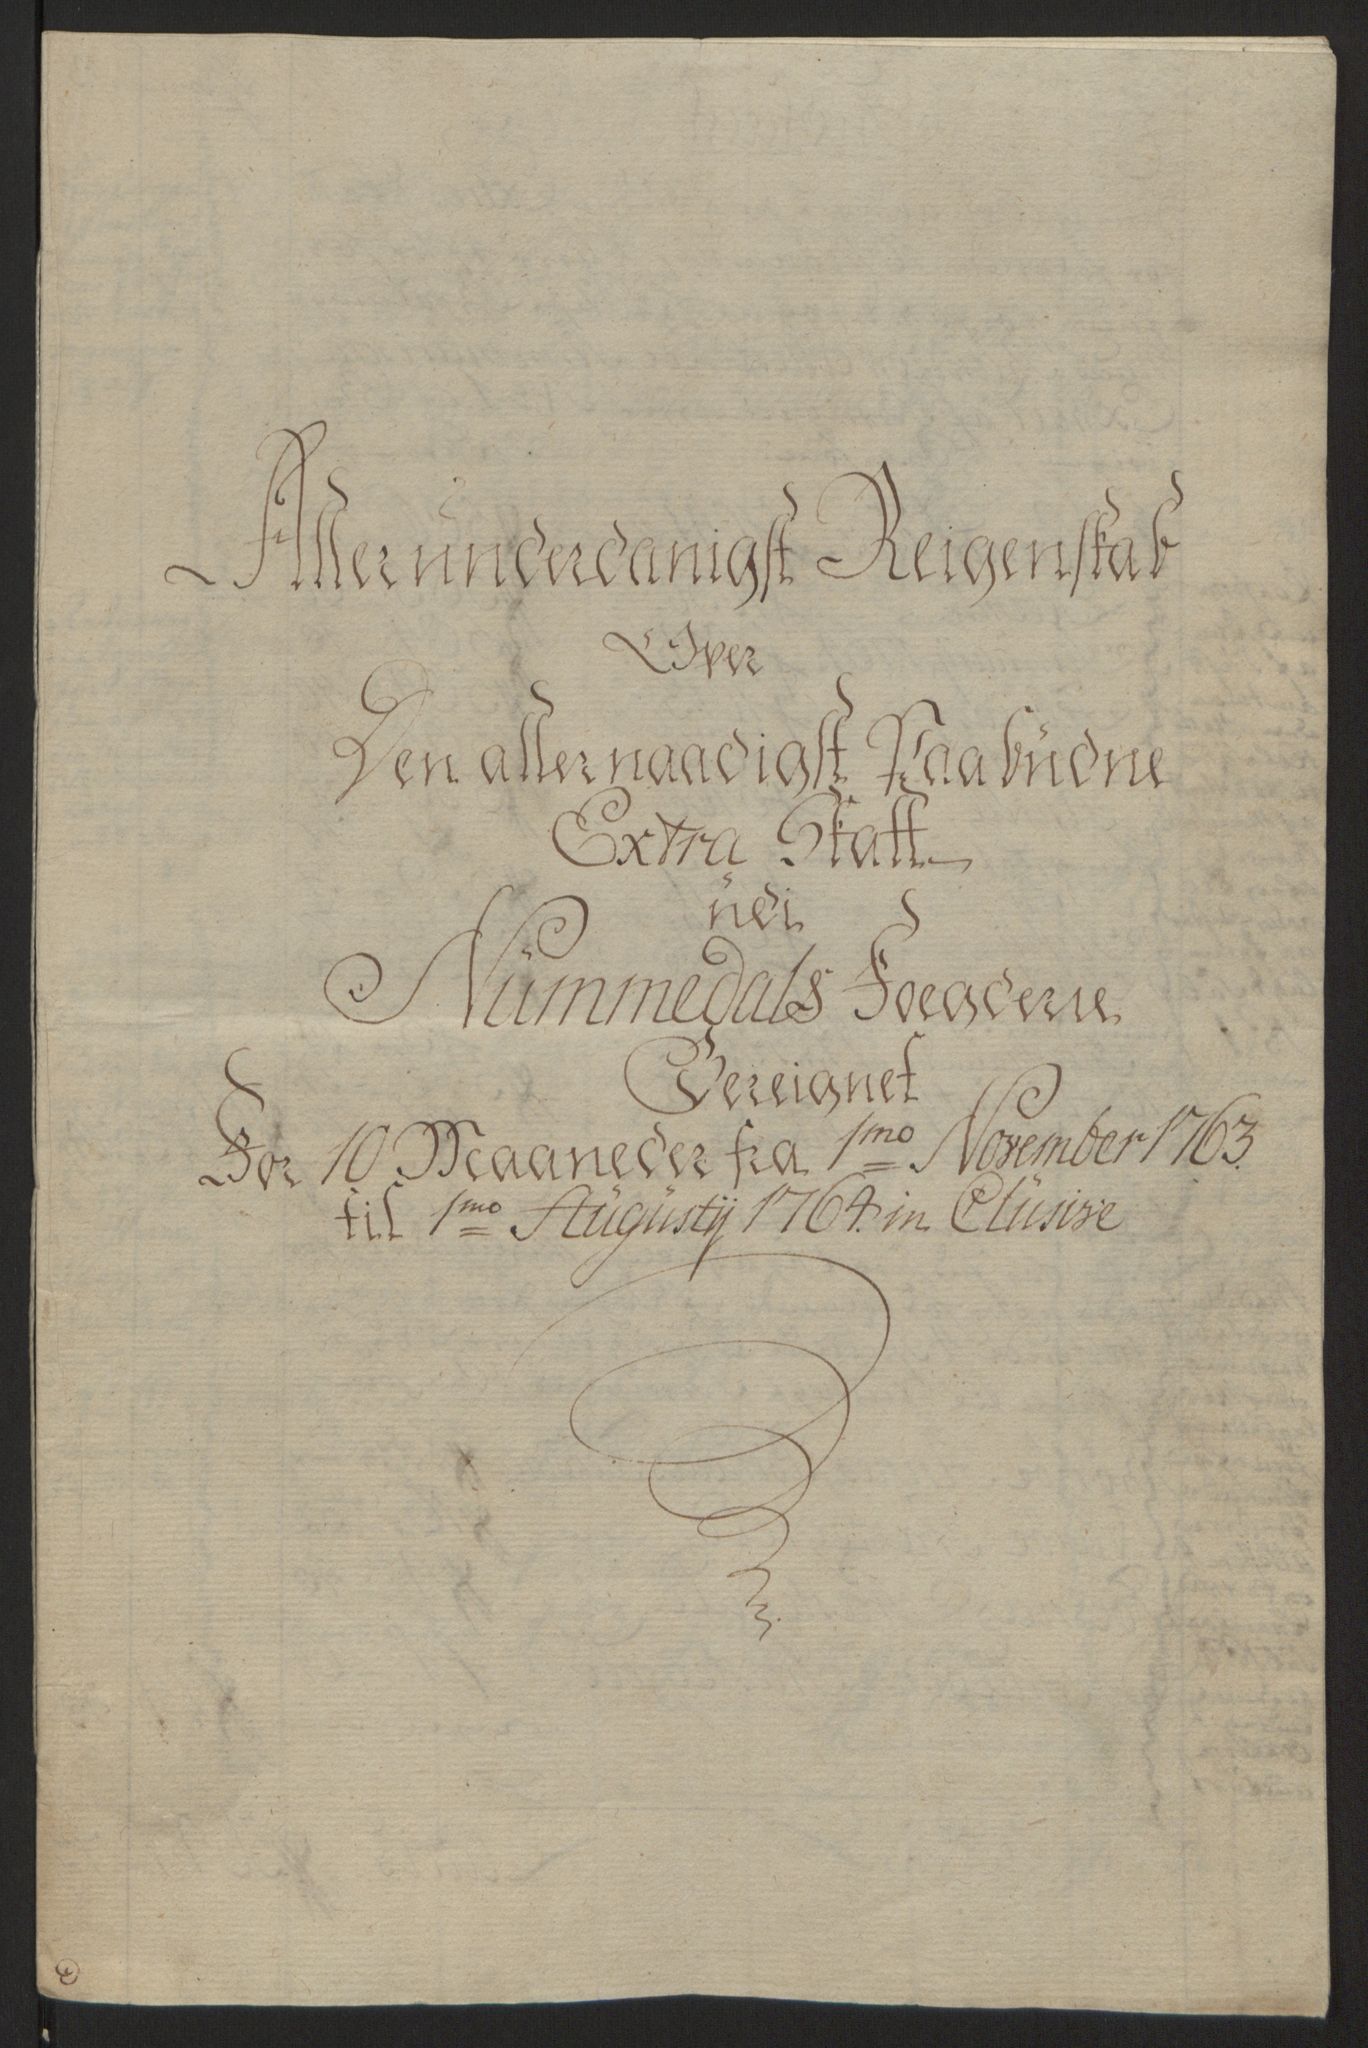 Allerunderdanigst Reigenskab
Over
Den allernaadigst Paabüdne
Extra Skatt
üdi
Nümmedals Foegderie
Bereignet
For 10 Maaneder fra 1mo November 1763.
til 1mo Augüstij 1764. in Clüsive